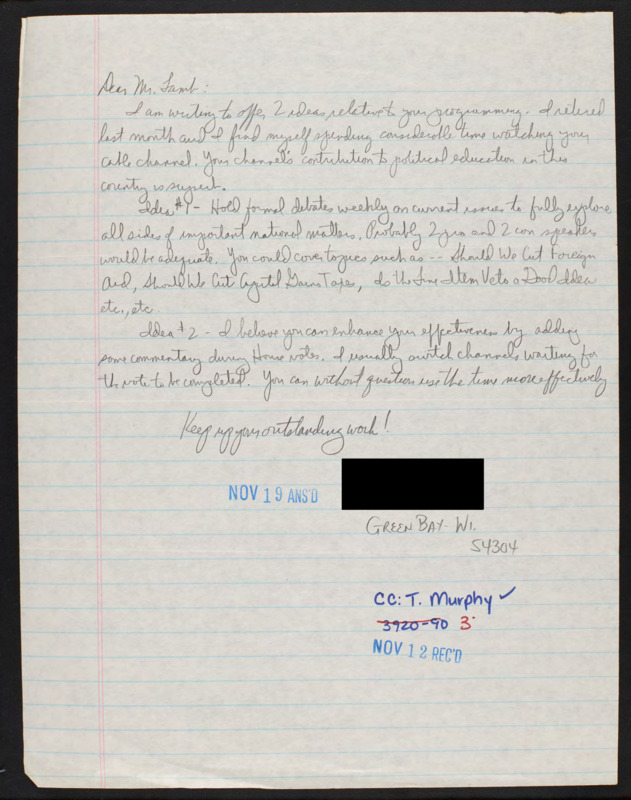 Dear Mr. Lamb:
I am writing to offer 2 ideas relative to your programming. I retired
last month and I find myself spending considerable time watching your
cable channel. Your channel's contribution to political education in this
country is superb.
Idea #1 - Hold formal debates weekly on current issues to fully explore
all sides of important national matters. Probably 2 pro and 2 con speakers
would be adequate. You could cover topics such as -- Should We Cut Foreign
Aid, Should We Cut Capital Gains Taxes, Is the Line Item Veto a Good Idea
etc., etc.
Idea #2 - I believe you can enhance your effectiveness by adding
some commentary during House votes. I usually switch channels waiting for
the vote to be completed. You can without question use the time more effectively
Keep up your outstanding work!
NOV 19 ANS'D
GREEN BAY - WI.
54304
CC: T. Murphy ✓
3920-90 3
NOV 12 REC'D